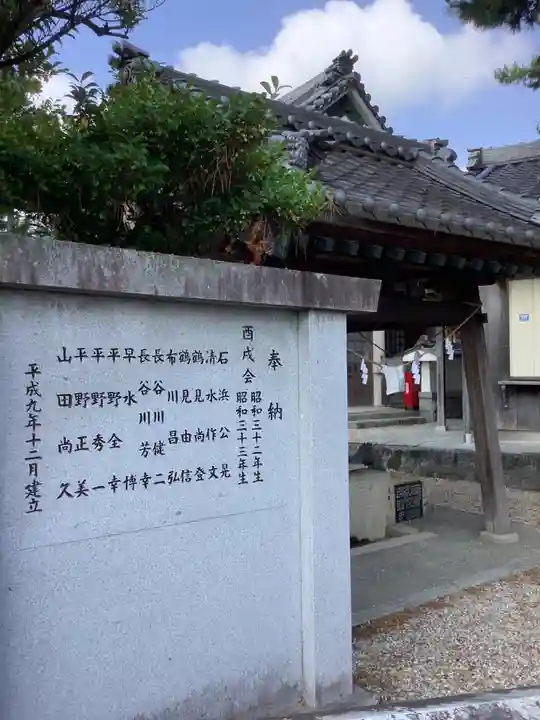 奉納
酉戌会
昭和三十二年生
昭和三十三年生
石浜公晃
清水作文
鶴見尚登
鶴見由信
布川昌弘
長谷川健二
長谷川芳幸
早水博
平野全幸
平野秀一
平野正美
山田尚久
平成九年十二月建立